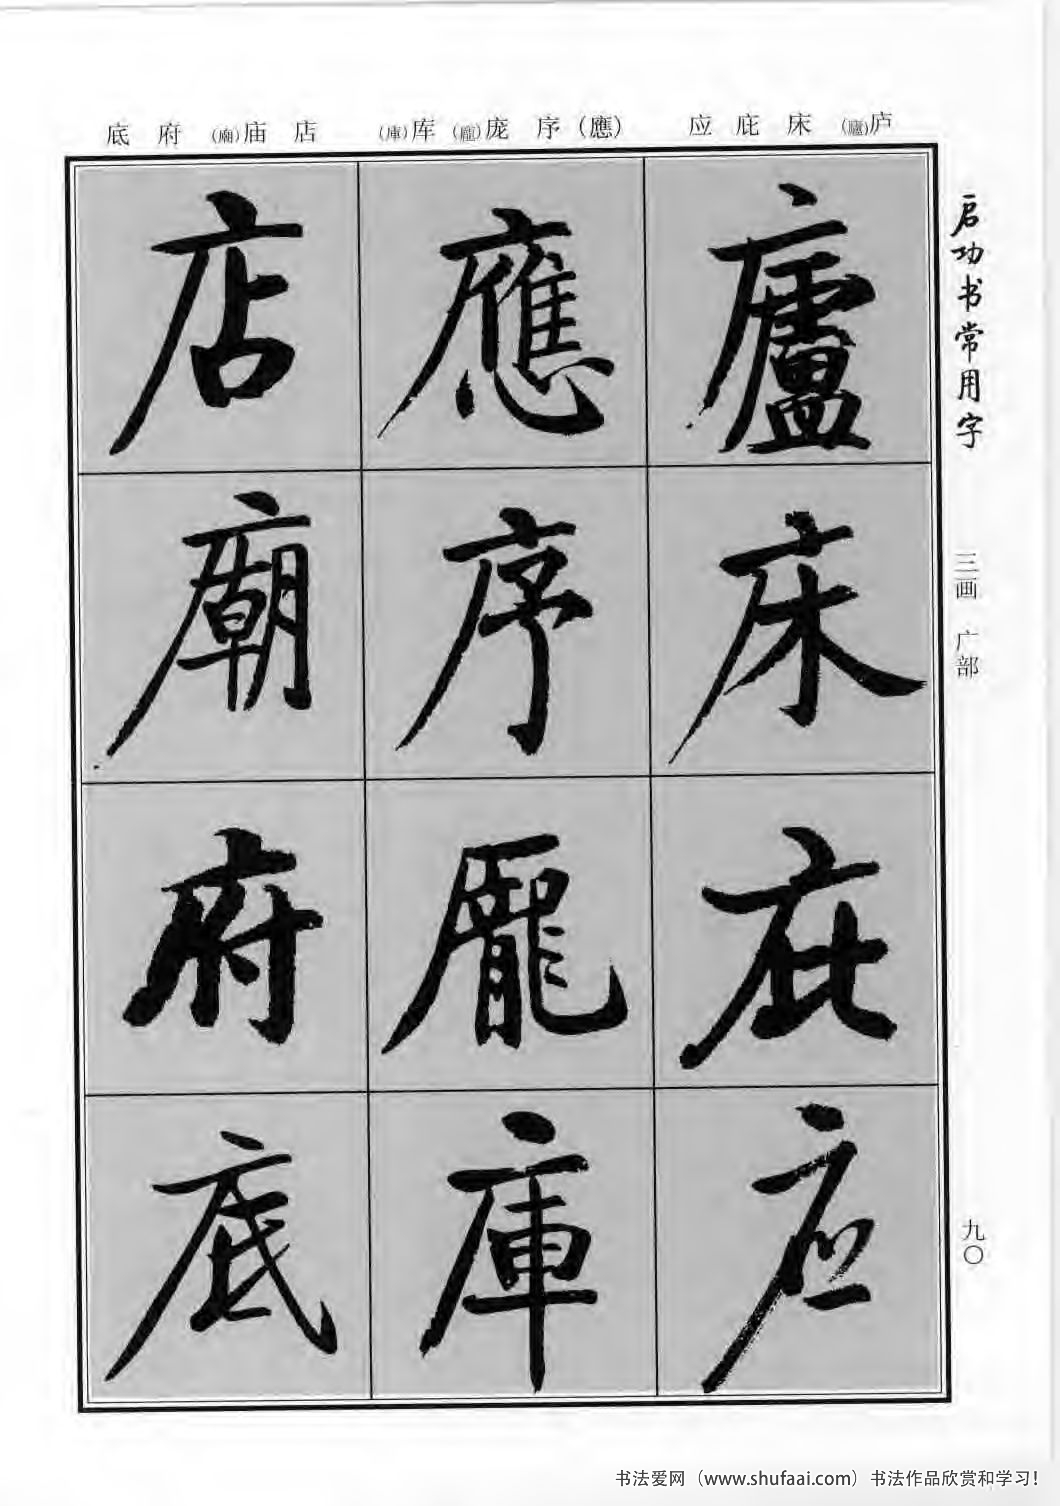 底 府 (廟)庙 店 (庫)库 (龐)庞 序 (應) 应 庇 床 (廬)庐
廬
床
庇
应
應
序
龐
庫
店
廟
府
底
启功书常用字
三画 广部
九〇
书法爱网（www.shufaai.com）书法作品欣赏和学习！